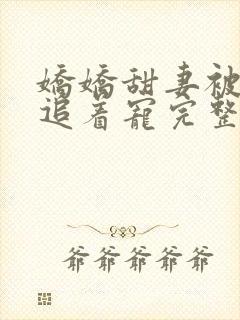 嬌嬌甜妻被
追着寵完整
爺爺爺爺爺